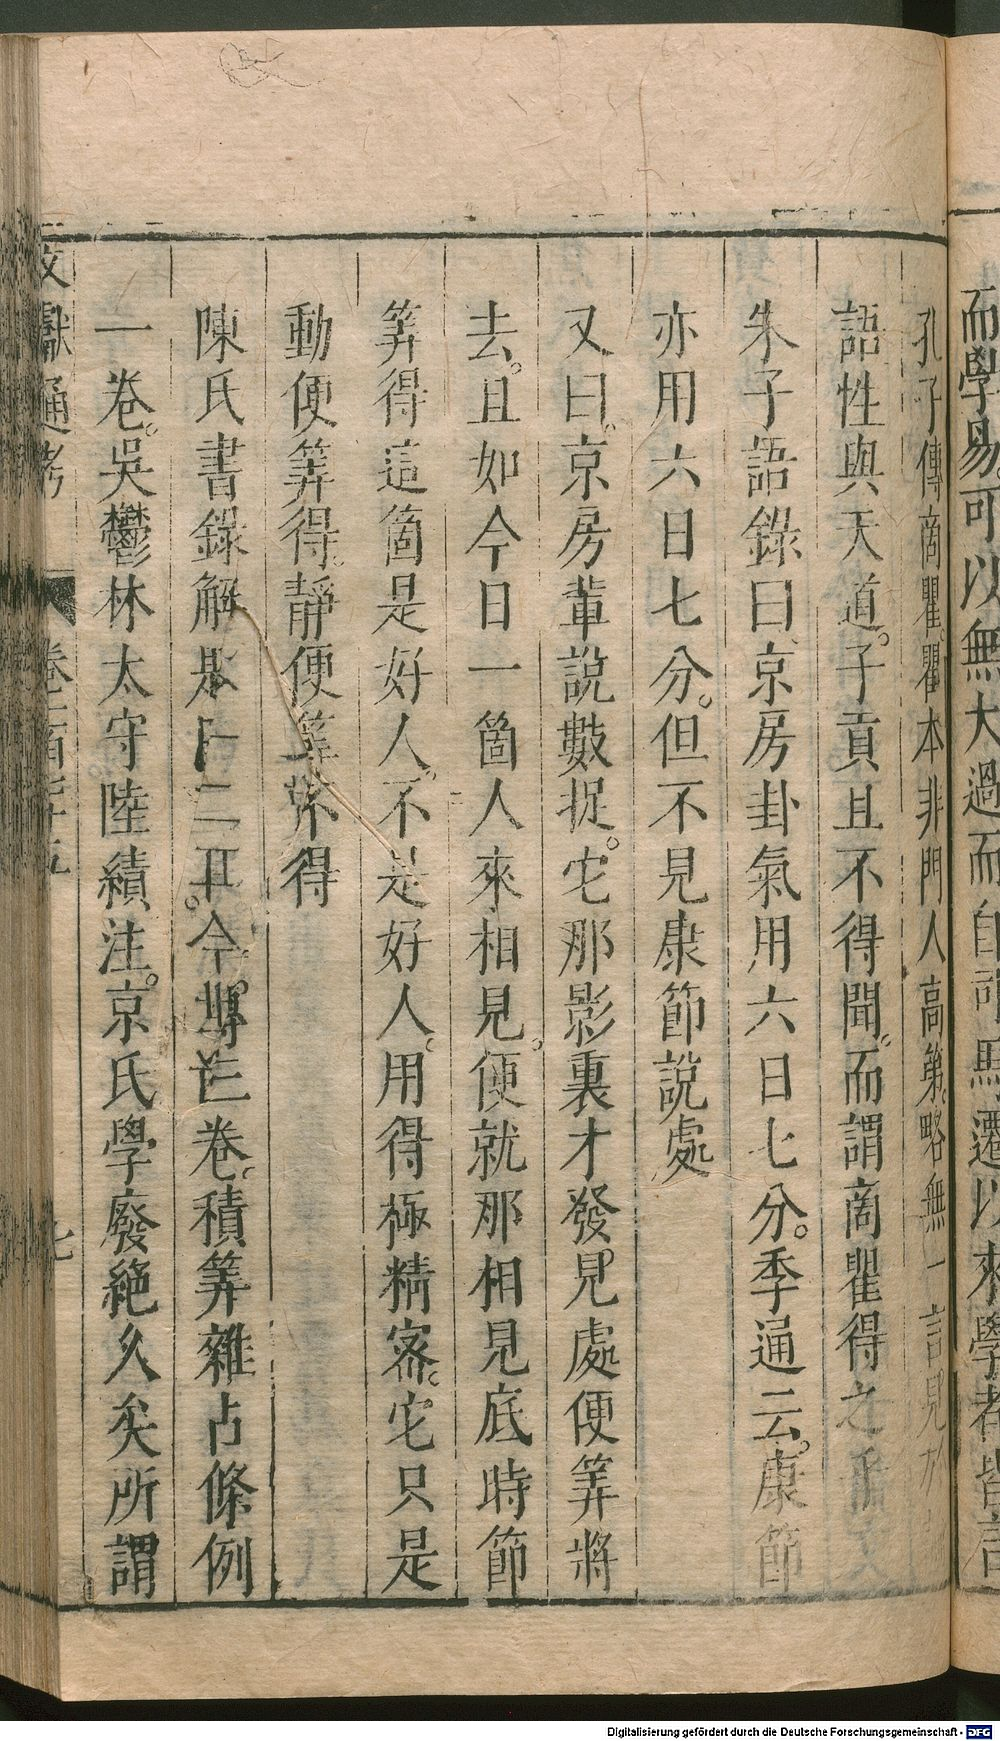 而學易可以無大過而自司馬遷以來學者皆言
孔子傳商瞿瞿本非門人高第略無一言見於
語性與天道子貢且不得聞而謂商瞿得之
朱子語錄曰京房卦氣用六日七分季通云康節
亦用六日七分但不見康節說處
又曰京房輩說數捉它那影裏才發見處便筭將
去且如今日一箇人來相見便就那相見底時節
筭得這箇是好人不是好人用得極精密它只是
動便筭得靜便筭不得
陳氏書錄解題
卷積筭雜占條例
一卷吳鬱林太守陸績注京氏學廢絕久矣所謂
文獻通考
卷一百七十五
七
Digitalisierung gefördert durch die Deutsche Forschungsgemeinschaft - DFG